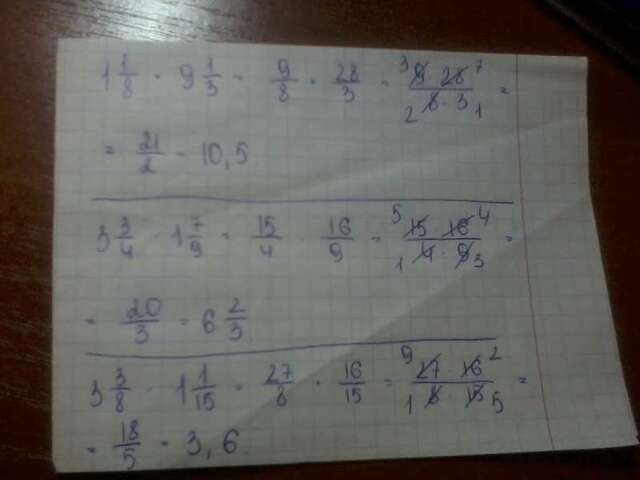 1 1/8 · 9 1/3 = 9/8 · 28/3 = 3 9 · 28 7 / 2 8 · 3 1 =
= 21/2 = 10,5
3 3/4 · 1 7/9 = 15/4 · 16/9 = 5 15 · 16 4 / 1 4 · 9 3 =
= 20/3 = 6 2/3
3 3/8 · 1 1/15 = 27/8 · 16/15 = 9 27 · 16 2 / 1 8 · 15 5 =
= 18/5 = 3,6